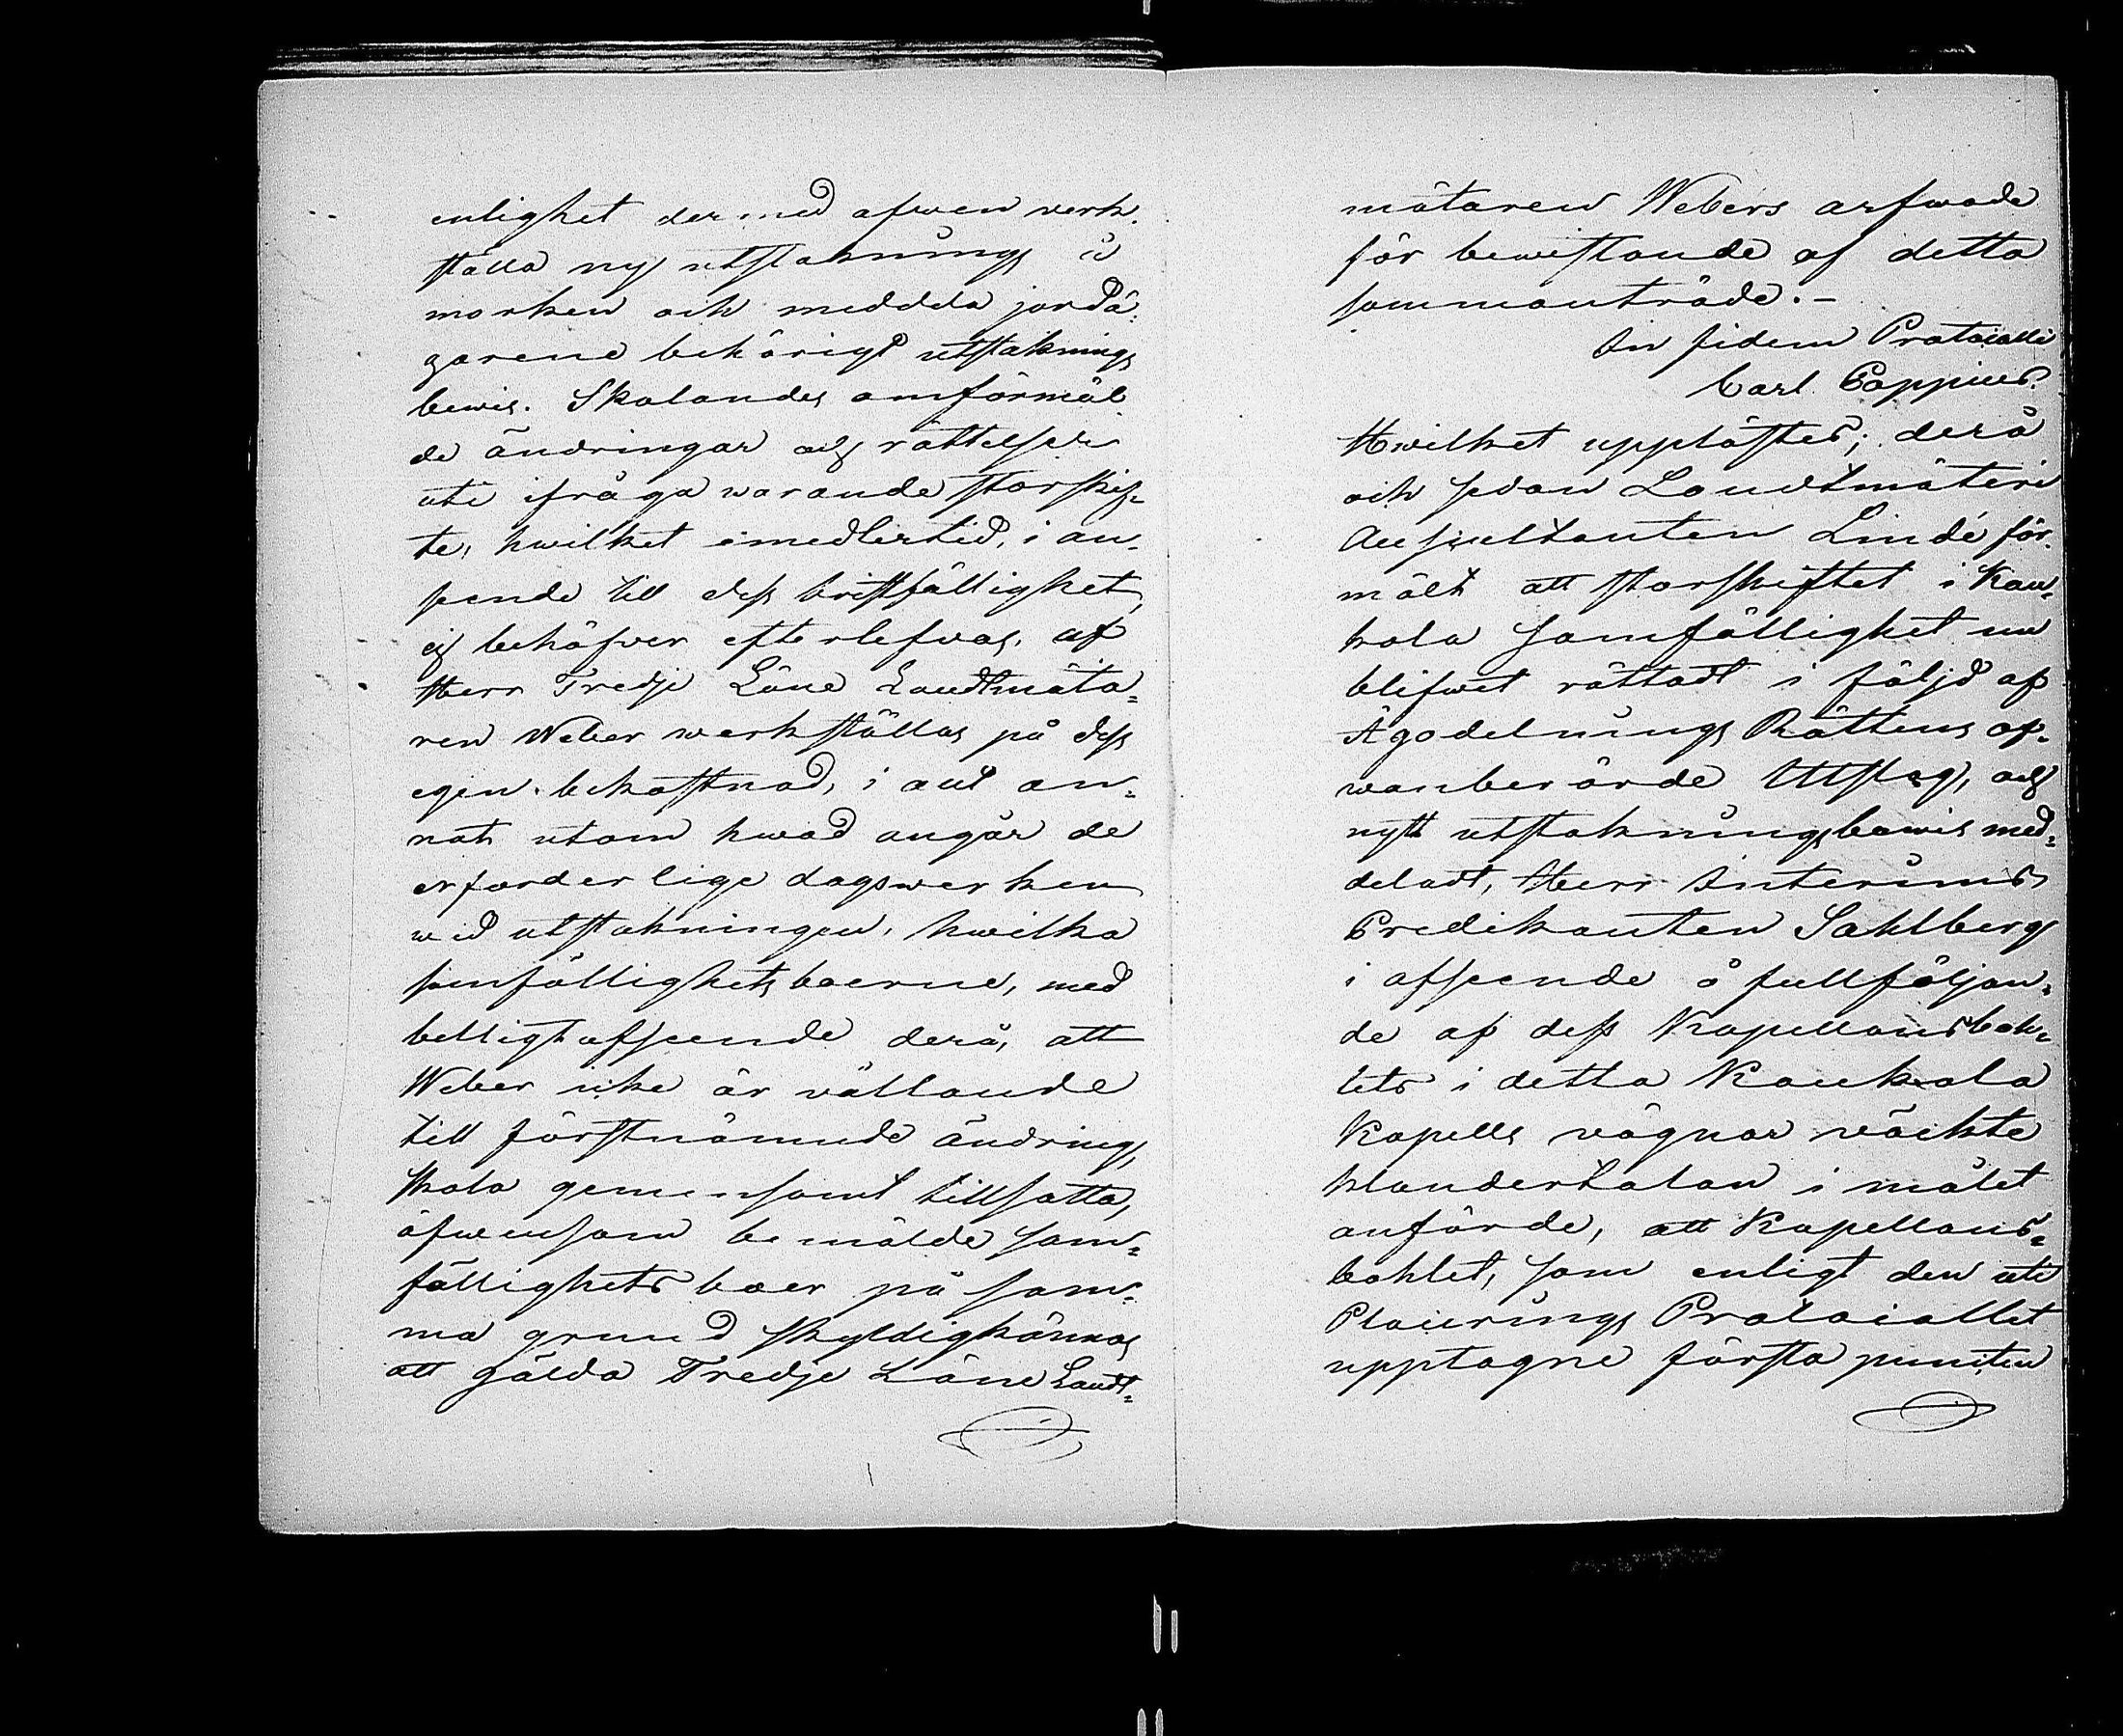 enlighet dermed äfwen werk-
ställa ny utstakning i
marken och meddela jordä-
garene behörigt utstaknings
bewis. Skolandes omförmäl
de ändringar och rättelser
uti ifråga warande storskif-
te, hwilket imedlertid, i an-
seende till dess bristfällighet,
ej behöfver efterlefvas, af
Herr Tredje Läne Landtmäta-
ren Weber werkställas på dess
egen bekostnad, i allt an-
nat utom hwad angår de
erforderlige dagswerken
wid utstakningen, hwilka
samfällighetsboerne, med
billigt afseende derå, att
Weber icke är vållande
till förstnämnde ändring,
skola gemensamt tillsätta,
äfwensom bemälde sam-
fällighets boer på sam-
ma grund skyldigkännas
att gälda Tredje Läne Landt-
mätaren Webers arfwode
för bewistande af detta
sammanträde.-
In fidem Protocolli
Carl Poppius.
Hwilket upplästes; derå
och sedan Landtmäteri
Auscultanten Lindé för-
mält att storskiftet i Kau-
kola samfällighet nu
blifwit rättadt i följd af
Ägodelnings Rättens of-
wanberörde Utslag, och
nytt utstakningsbewis med-
deladt, Herr Interims
Predikanten Sahlberg
i afseende å fullföljan-
de af dess Kapellansboh-
lets i detta Kaukola
Kapells vägnar väckte
klandertalan i målet
anförde, att Kapellans-
bohlet, som enligt den uti
Placerings Protocollet
upptagne första puncten